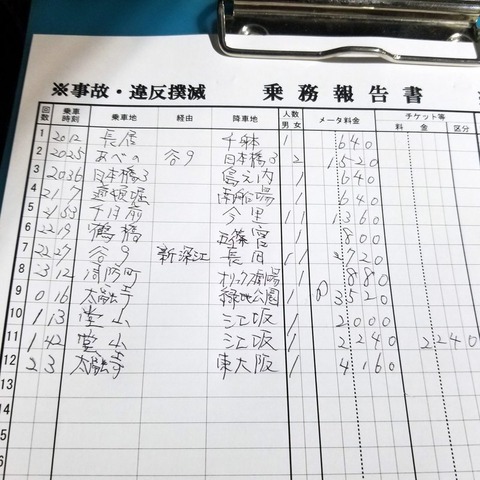 ※事故・違反撲滅 乗務報告書
回数 乗車時刻 乗車地 経由 降車地 人数 男 女 メータ料金 チケット等 料金 区分
1 2012 長居 千躰 1 640
2 2025 あべの 谷9 日本橋3 2 1520
3 2036 日本橋3 島之内 1 640
4 217 南船場 1 640
5 2153 千日前 今里 1 1 1360
6 2219 鶴橋 1 800
7 2227 谷9 新深江 長田 1 1 2720
8 2312 消防町 オリックス劇場 1 880
9 016 太融寺 緑地公園 1 3520
10 113 堂山 江坂 1 2000
11 142 堂山 江坂 1 2240 2240
12 23 太融寺 東大阪 1 4160
13
14
15
16